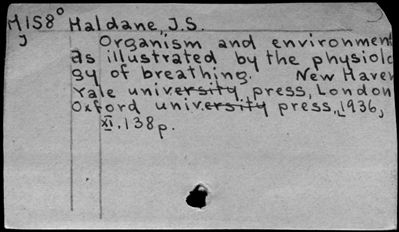 M158° Haldane, J.S.
J Organism and environment
as illustrated by the physiolo
gy of breathing. New Haven
Yale university press, London
Oxford university press, 1936,
XI, 138 p.